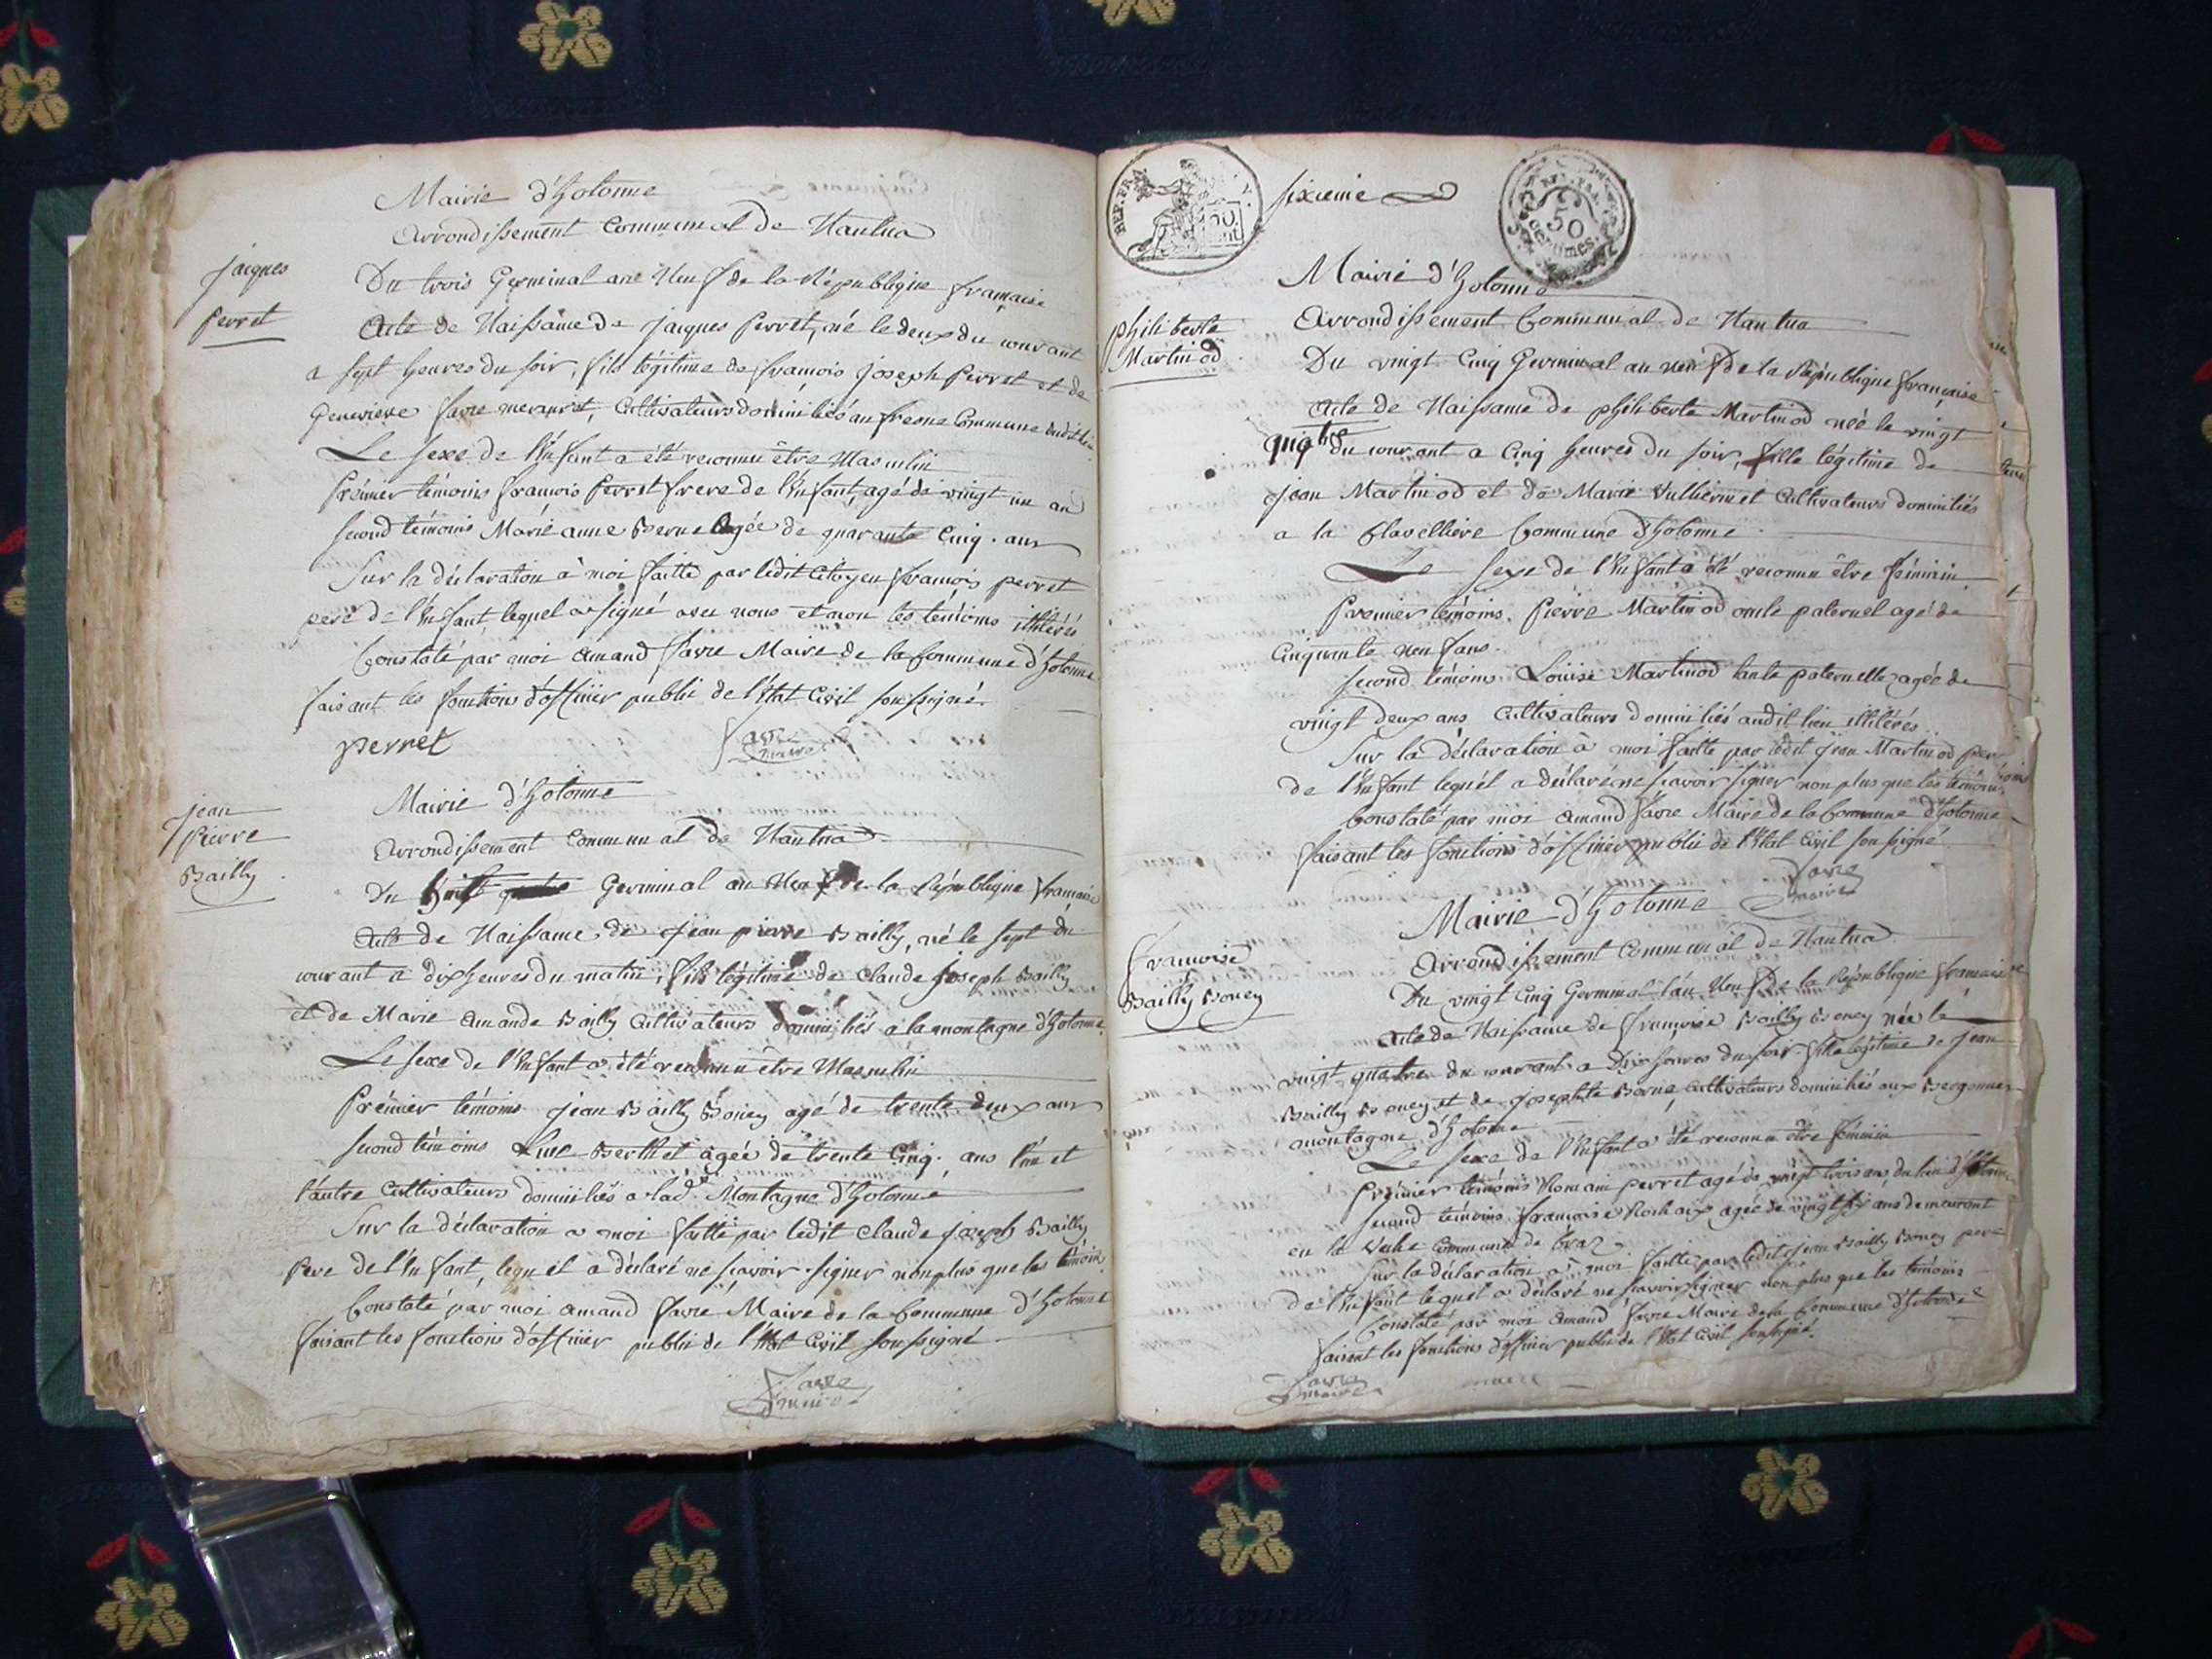 Mairie d'hotonne
Arrondissement Communal de Nantua
jacques
Perret
Du trois Germinal an Neuf de la République française
Acte de Naissance de jacques Perret, né le deux du courant
a sept heures du soir, fils légitime de francois joseph Perret et de
Genevieve favre Cultivateurs domiciliés au fresne Commune
Le sexe de l'Enfant a été reconnu être Masculin
Prémier témoins francois Perret frere de l'Enfant, agé de vingt un an
second témoins Marie anne Berne agée de quarante Cinq ans
Sur la déclaration à moi faitte par ledit Citoyen francois perret
pere de l'Enfant, lequel a signé avec nous et non les témoins illitérés
Constaté par moi Amand favre Maire de la Commune d'hotonne
faisant les fonctions d'officier public de l'Etat Civil soussigné.
perret
favre
maire
jean
Pierre
Bailly
Mairie d'hotonne
Arrondissement Communal de Nantua
Du huit Germinal an Neuf de la République française
Acte de Naissance de jean pierre Bailly, né le sept du
courant a dix heures du matin, fils légitime de Claude joseph Bailly
et de Marie Amande Bailly Cultivateurs domiciliés a la montagne d'hotonne.
Le sexe de l'Enfant a été reconnu être Masculin
Prémier témoins jean Bailly Boney agé de trente deux ans
second témoins Berthet agée de trente Cinq ans l'un et
l'autre Cultivateurs domiciliés a lad. Montagne d'hotonne
Sur la déclaration a moi faitte par ledit Claude joseph Bailly
Pere de l'Enfant, lequel a déclaré ne scavoir signer nonplus que les témoins
Constaté par moi amand favre Maire de la Commune d'hotonne
faisant les fonctions d'officier public de l'Etat Civil soussigné
favre
maire
REP. FRA.
sixieme
50
centimes
Mairie d'hotonne
Arrondissement Communal de Nantua
philiberte
Martinod
Du vingt Cinq Germinal an neuf de la République française
Acte de Naissance de philiberte Martinod née le vingt
quatre du courant a Cinq heures du soir, fille légitime de
jean Martinod et de Marie Vulliermet Cultivateurs domiciliés
a la Clavelliere Commune d'hotonne
Le sexe de l'Enfant a été reconnu être féminin
Premier témoins Pierre Martinod oncle paternel agé de
Cinquante neuf ans.
second témoins Louise Martinod tante paternelle agée de
vingt deux ans Cultivateurs domiciliés audit lieu illitérés
Sur la déclaration à moi faitte par ledit jean Martinod pere
de l'Enfant lequel a déclaré ne scavoir signer non plus que les témoins
Constaté par moi Amand favre Maire de la Commune d'hotonne
faisant les fonctions d'officier public de l'Etat Civil soussigné
favre
maire
Mairie d'hotonne
Arrondissement Communal de Nantua
francoise
Bailly Boney
Du vingt Cinq Germinal l'an Neuf de la République francaise
Acte de Naissance de francoise Bailly Boney née le
vingt quatre du courant a Dix heures du soir fille légitime de jean
Bailly Boney et de josephte Borne, Cultivateurs domiciliés aux Bergonnes
montagne d'hotonne
Le sexe de l'Enfant a été reconnu être féminin
Prémier témoins Romain perret agé de vingt trois ans du lieu d'hotonne
second témoins francoise agée de vingt six ans demeurant
en la Commune de
Sur la déclaration a moi faitte par ledit jean Bailly Boney pere
de l'Enfant lequel a déclaré ne scavoir signer non plus que les témoins
Constaté par moi Amand favre Maire de la Commune d'hotonne
faisant les fonctions d'officier public de l'Etat Civil soussigné.
favre
maire